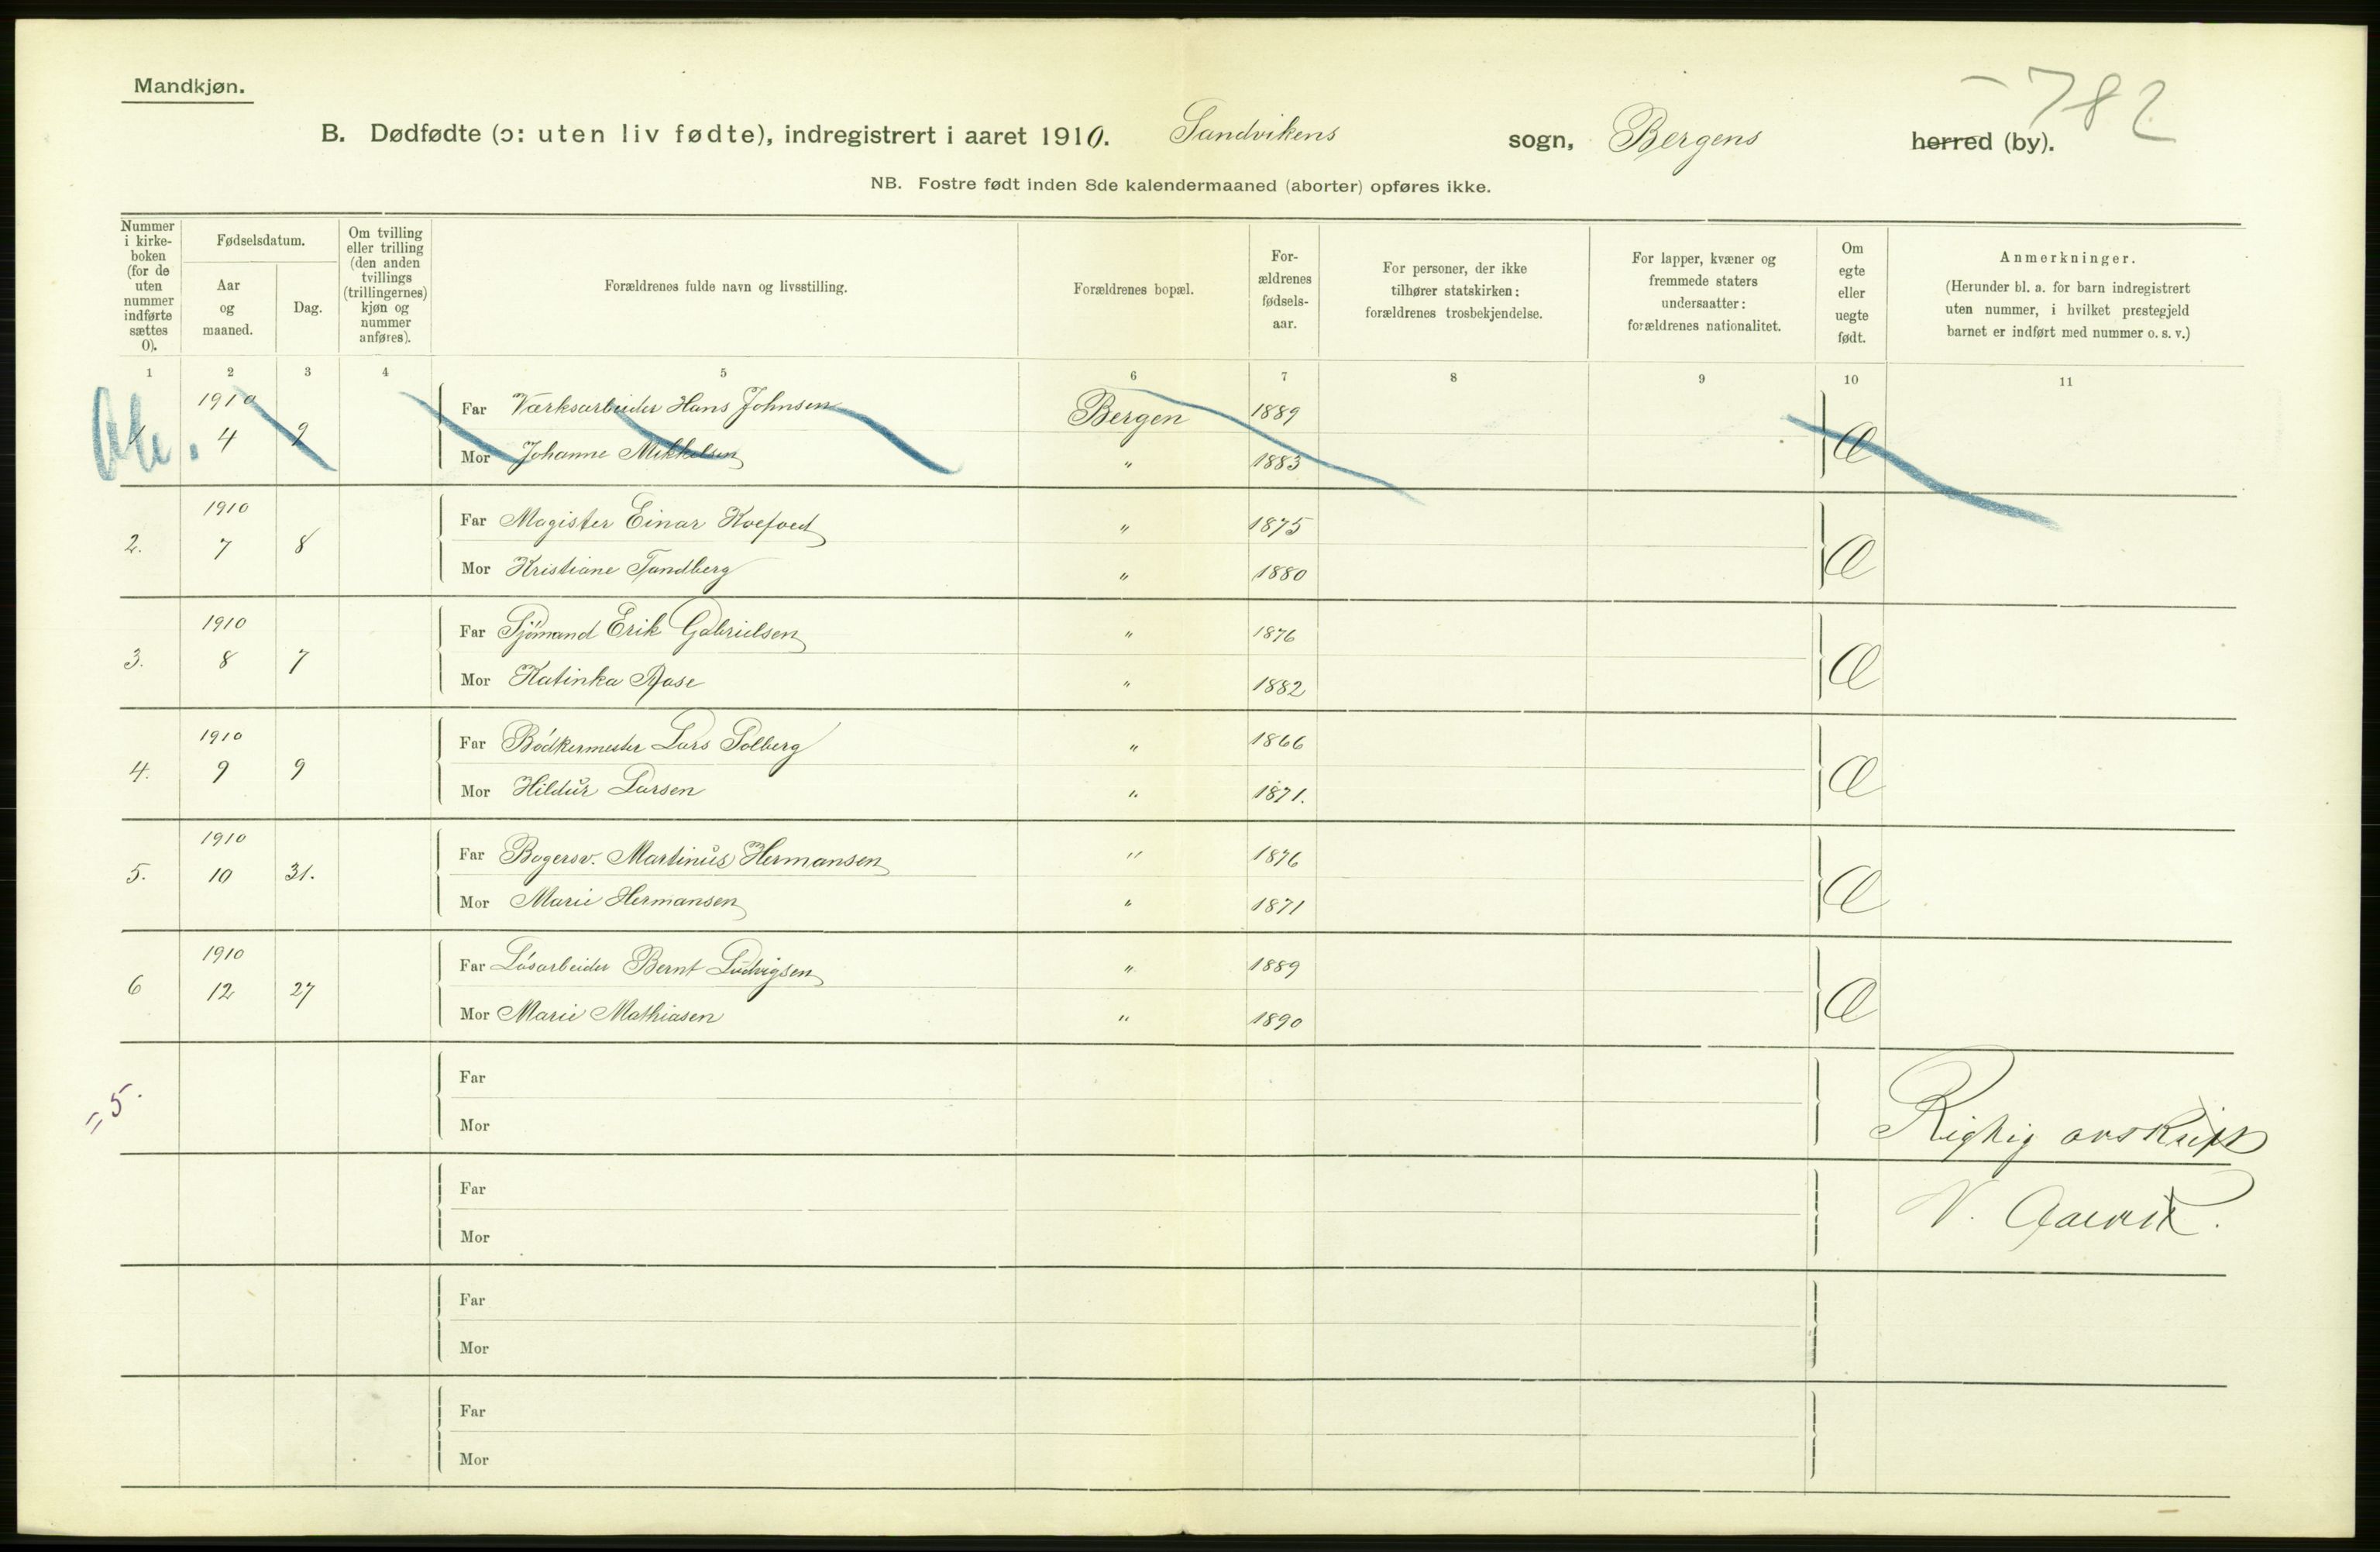 Mandkjøn.
- 782
B. Dødfødte (ɔ: uten liv fødte), indregistrert i aaret 1910. Sandvikens sogn, Bergens herred (by).
NB. Fostre født inden 8de kalendermaaned (aborter) opføres ikke.
Nummer i kirke-boken (for de uten nummer indførte sættes 0).
Fødselsdatum.
Aar og maaned.
Dag.
Om tvilling eller trilling (den anden tvillings (trillingernes) kjøn og nummer anføres).
Forældrenes fulde navn og livsstilling.
Forældrenes bopæl.
For-ældrenes fødsels-aar.
For personer, der ikke tilhører statskirken: forældrenes trosbekjendelse.
For lapper, kvæner og fremmede staters undersaatter: forældrenes nationalitet.
Om egte eller uegte født.
Anmerkninger.
(Herunder bl. a. for barn indregistrert uten nummer, i hvilket prestegjeld barnet er indført med nummer o. s. v.)
1 2 3 4 5 6 7 8 9 10 11
1910
Far Værksarbeider Hans Johnsen Bergen 1889
1 4 9 Æ
Mor Johanne Mikkelsen " 1883
1910
Far Magister Einar Koefoed " 1875
2. 7 8 Æ
Mor Kristiane Tandberg " 1880
1910
Far Sjömand Erik Gabrielsen " 1876
3. 8 7 Æ
Mor Katinka Aase " 1882
1910
Far Bödkermester Lars Solberg " 1866
4. 9 9 Æ
Mor Hildur Larsen " 1871.
1910
Far Bagersv. Martinus Hermansen " 1876
5. 10 31. Æ
Mor Marie Hermansen " 1871
1910
Far Lösarbeider Bernt Ludvigsen " 1889
6 12 27 Æ
Mor Marie Mathiasen " 1890
= 5.
Far
Mor
Rigtig avskrift
Far
Mor
Far
Mor
Far
Mor